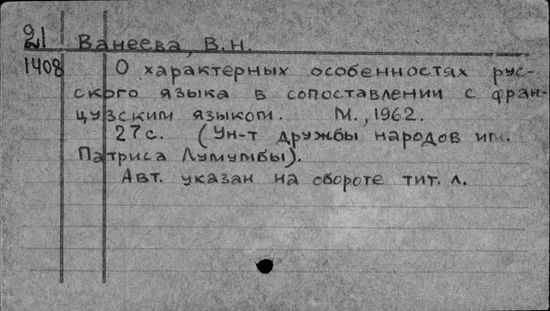 21 Ванеева, В.Н.
1408 О характерных особенностях рус-
ского языка в сопоставлении с фран-
цузским языком. М., 1962.
27с. (Ун-т дружбы народов им.
Патриса Лумумбы).
Авт. указан на обороте тит. л.